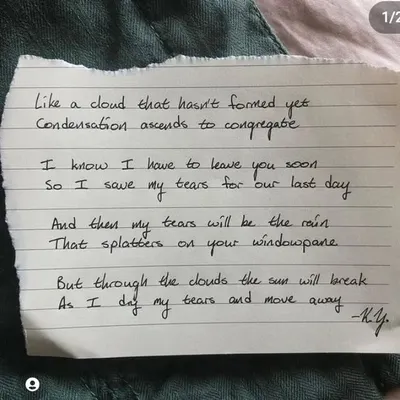 1/2
Like a cloud that hasn't formed yet
Condensation ascends to congregate
I know I have to leave you soon
So I save my tears for our last day
And then my tears will be the rain
That splatters on your windowpane
But through the clouds the sun will break
As I dry my tears and move away
-K.Y.